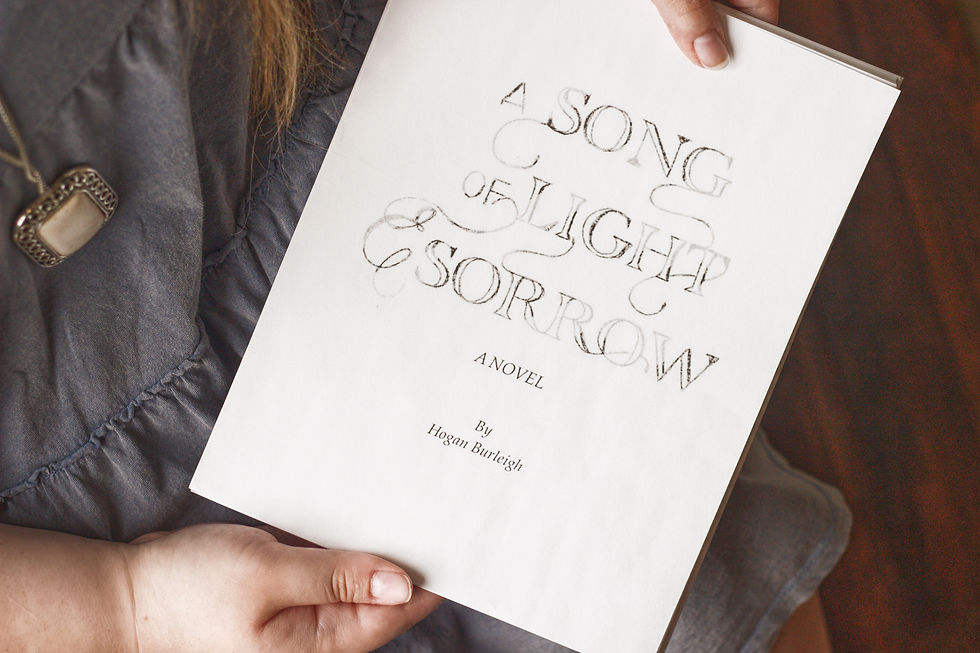 A SONG
OF LIGHT
& SORROW
A NOVEL
By
Hogan Burleigh